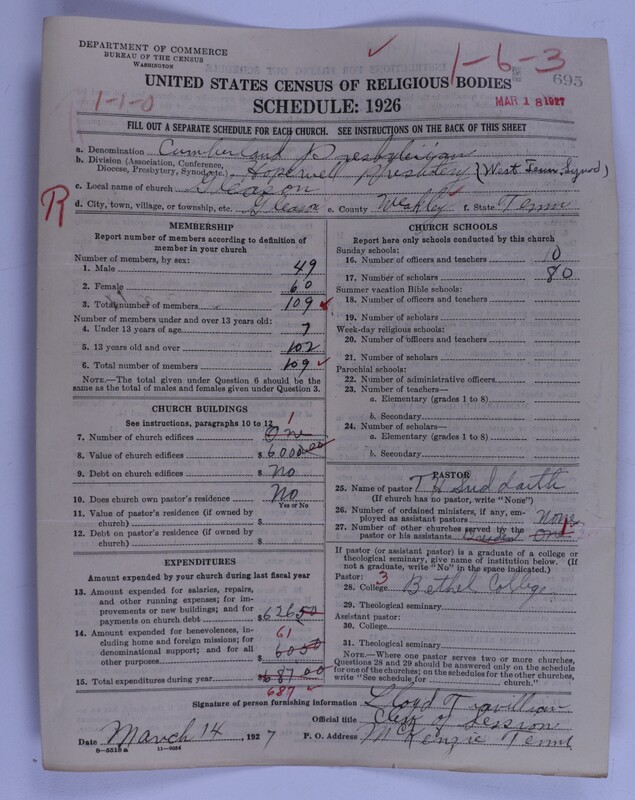 DEPARTMENT OF COMMERCE
BUREAU OF THE CENSUS
WASHINGTON
1-6-3
695
UNITED STATES CENSUS OF RELIGIOUS BODIES
MAR 18 1927
1-1-0
SCHEDULE: 1926
FILL OUT A SEPARATE SCHEDULE FOR EACH CHURCH. SEE INSTRUCTIONS ON THE BACK OF THIS SHEET
a. Denomination Cumberland Presbyterian
b. Division (Association, Conference, Diocese, Presbytery, Synod, etc.) Hopewell Presbytery (West Tenn Synod)
c. Local name of church Gleason
R
d. City, town, village, or township, etc. Gleason e. County Weakley f. State Tenn
MEMBERSHIP
Report number of members according to definition of member in your church
Number of members, by sex:
1. Male 49
2. Female 60
3. Total number of members 109
Number of members under and over 13 years old:
4. Under 13 years of age 7
5. 13 years old and over 102
6. Total number of members 109
NOTE.—The total given under Question 6 should be the same as the total of males and females given under Question 3.
CHURCH BUILDINGS
See instructions, paragraphs 10 to 12
1
7. Number of church edifices One
8. Value of church edifices $ 6000.00
9. Debt on church edifices $ No
10. Does church own pastor's residence No
Yes or No
11. Value of pastor's residence (if owned by church) $
12. Debt on pastor's residence (if owned by church) $
EXPENDITURES
Amount expended by your church during last fiscal year
13. Amount expended for salaries, repairs, and other running expenses; for improvements or new buildings; and for payments on church debt $ 626 50
61
14. Amount expended for benevolences, including home and foreign missions; for denominational support; and for all other purposes 60 50
15. Total expenditures during year $ 687 00
687
CHURCH SCHOOLS
Report here only schools conducted by this church
Sunday schools:
16. Number of officers and teachers 10
17. Number of scholars 80
Summer vacation Bible schools:
18. Number of officers and teachers
19. Number of scholars
Week-day religious schools:
20. Number of officers and teachers
21. Number of scholars
Parochial schools:
22. Number of administrative officers
23. Number of teachers—
a. Elementary (grades 1 to 8)
b. Secondary
24. Number of scholars—
a. Elementary (grades 1 to 8)
b. Secondary
PASTOR
25. Name of pastor T H Suddath
(If church has no pastor, write "None")
26. Number of ordained ministers, if any, employed as assistant pastors None
27. Number of other churches served by the pastor or his assistants One
1
If pastor (or assistant pastor) is a graduate of a college or theological seminary, give name of institution below. (If not a graduate, write "No" in the space indicated.)
Pastor: 3
28. College Bethel College
29. Theological seminary
Assistant pastor:
30. College
31. Theological seminary
NOTE.—Where one pastor serves two or more churches, Questions 28 and 29 should be answered only on the schedule for one of the churches; on the schedules for the other churches, write "See schedule for church."
Signature of person furnishing information Lloyd Travillian
Official title Clerk of Session
Date March 14, 1927 P. O. Address McKenzie Tenn
8-5518a 11-9054